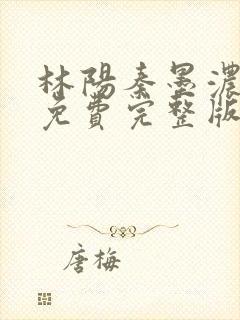 林陽秦墨濃
免費完整版
唐梅